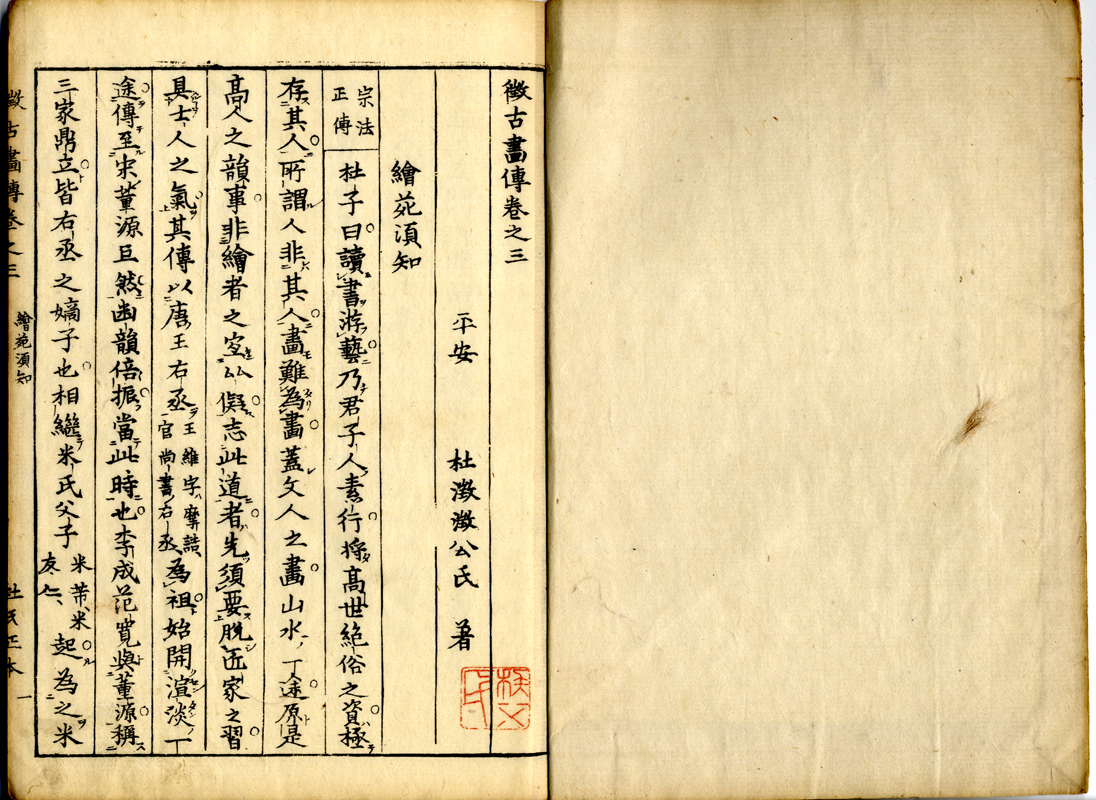 徴古畫傳卷之三
平安 杜澂澂公氏 著
繪苑須知
宗法
正傳
杜子曰讀書游藝乃君子人素行將高世絶俗之資極
存其人所謂人非其人畫難為畫蓋文人之畫山水ノ一途原是
高人之韻事非繪者之㝎公儗志此道者先須要脱匠家之習
具士人之氣其傳以唐王右丞
王維字摩詰
官尚書右丞
為祖始開渲淡一
途傳至宋董源巨然幽韻倍振當此時也李成范寛與董源稱
三家鼎立皆右丞之嫡子也相繼米氏父子
米芾米
友仁
起為之米
徴古畫傳卷之三
繪苑須知
杜氏正本
一